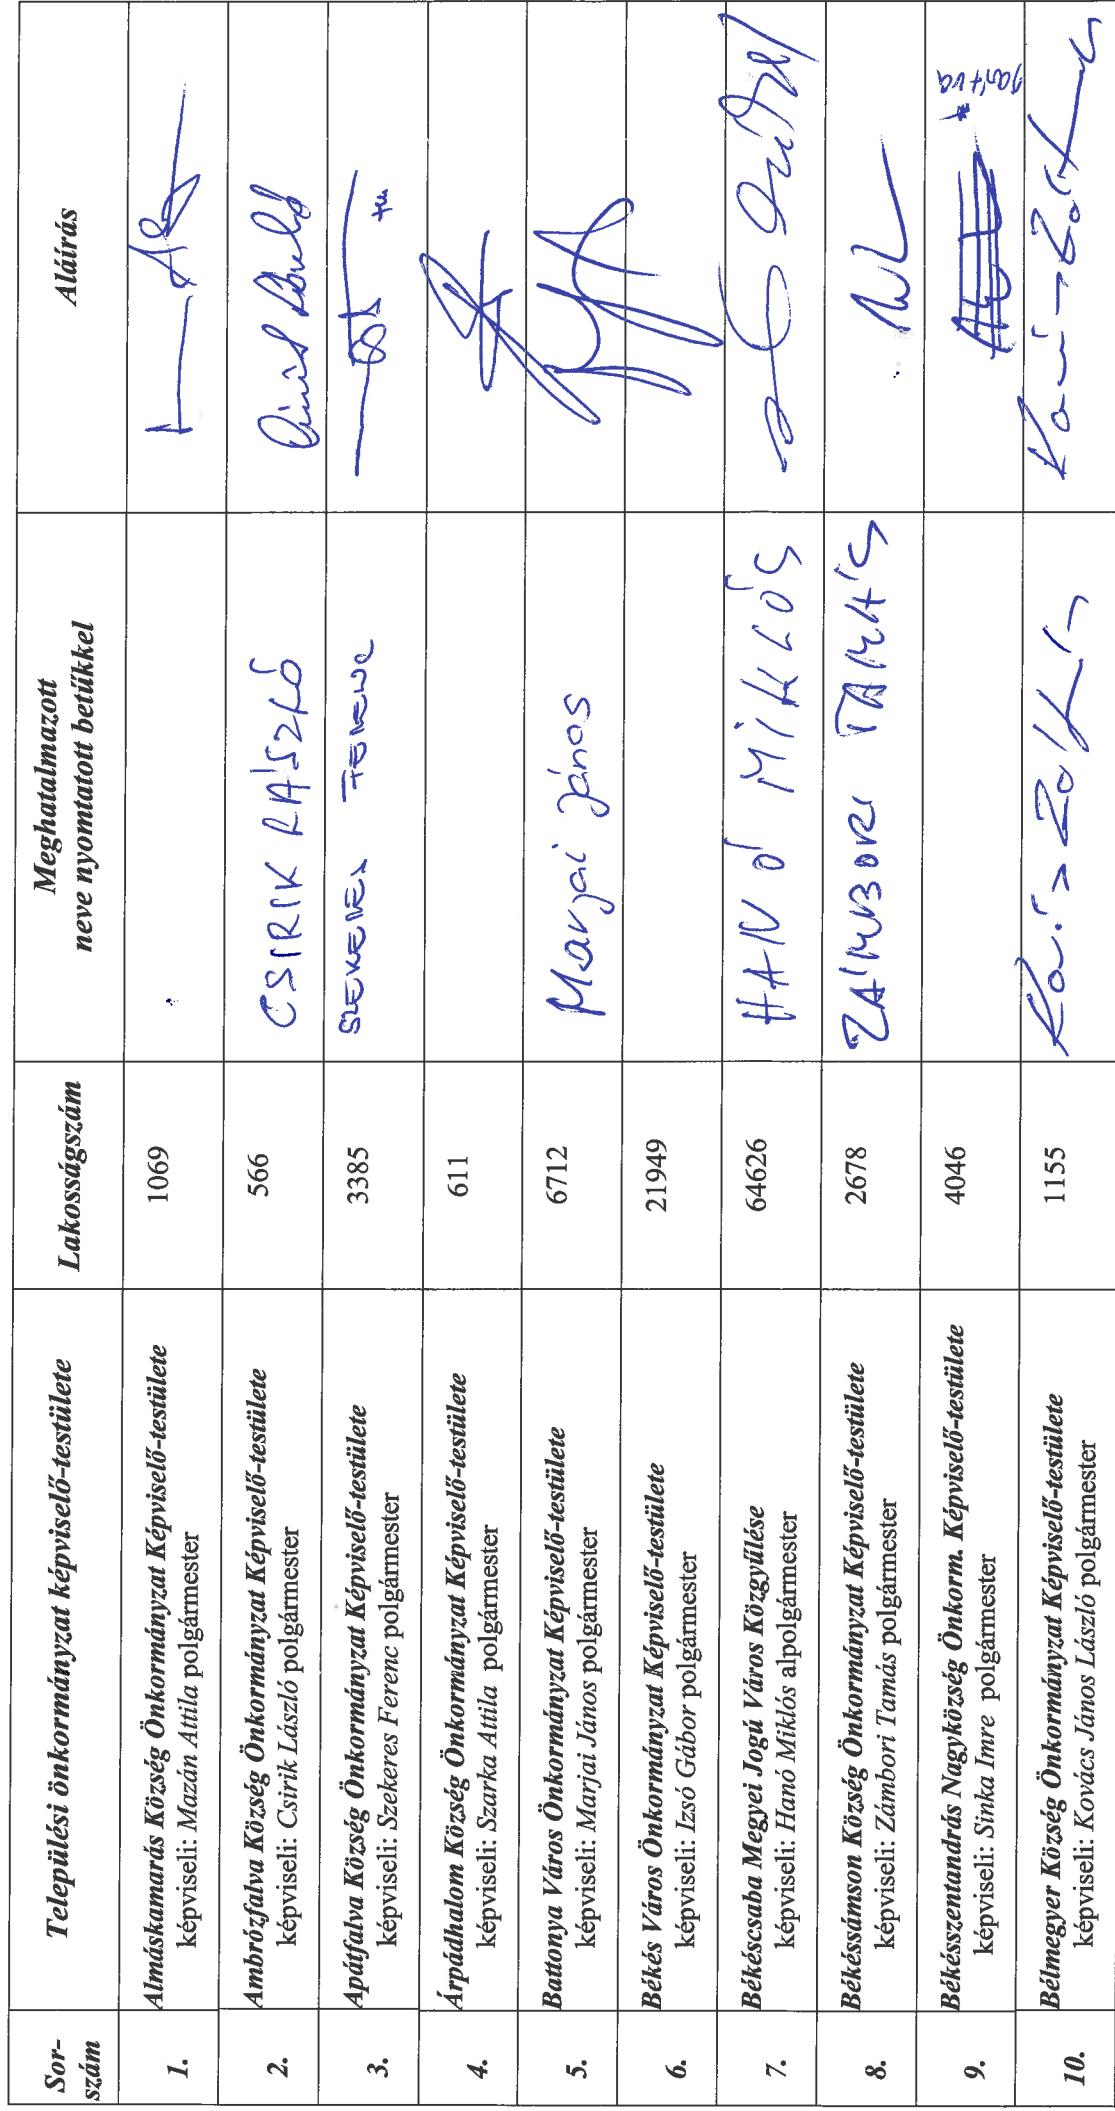 Sor-
szám
Települési önkormányzat képviselő-testülete
Lakosságszám
Meghatalmazott
neve nyomtatott betűkkel
Aláírás
1.
Almáskamarás Község Önkormányzat Képviselő-testülete
képviseli: Mazán Attila polgármester
1069
2.
Ambrózfalva Község Önkormányzat Képviselő-testülete
képviseli: Csirik László polgármester
566
CSIRIK LÁSZLÓ
Csirik László
3.
Apátfalva Község Önkormányzat Képviselő-testülete
képviseli: Szekeres Ferenc polgármester
3385
SZEKERES FERENC
4.
Árpádhalom Község Önkormányzat Képviselő-testülete
képviseli: Szarka Attila polgármester
611
5.
Battonya Város Önkormányzat Képviselő-testülete
képviseli: Marjai János polgármester
6712
Marjai János
6.
Békés Város Önkormányzat Képviselő-testülete
képviseli: Izsó Gábor polgármester
21949
7.
Békéscsaba Megyei Jogú Város Közgyűlése
képviseli: Hanó Miklós alpolgármester
64626
HANÓ MIKLÓS
8.
Békéssámson Község Önkormányzat Képviselő-testülete
képviseli: Zámbori Tamás polgármester
2678
ZÁMBORI TAMÁS
9.
Békésszentandrás Nagyközség Önkorm. Képviselő-testülete
képviseli: Sinka Imre polgármester
4046
* javítva
10.
Bélmegyer Község Önkormányzat Képviselő-testülete
képviseli: Kovács János László polgármester
1155